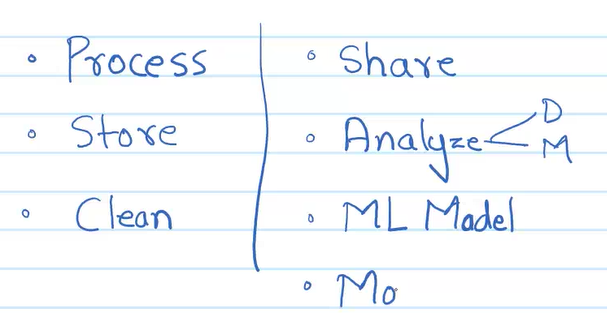 Process
Store
Clean
Share
Analyze D
M
ML Model
Mo